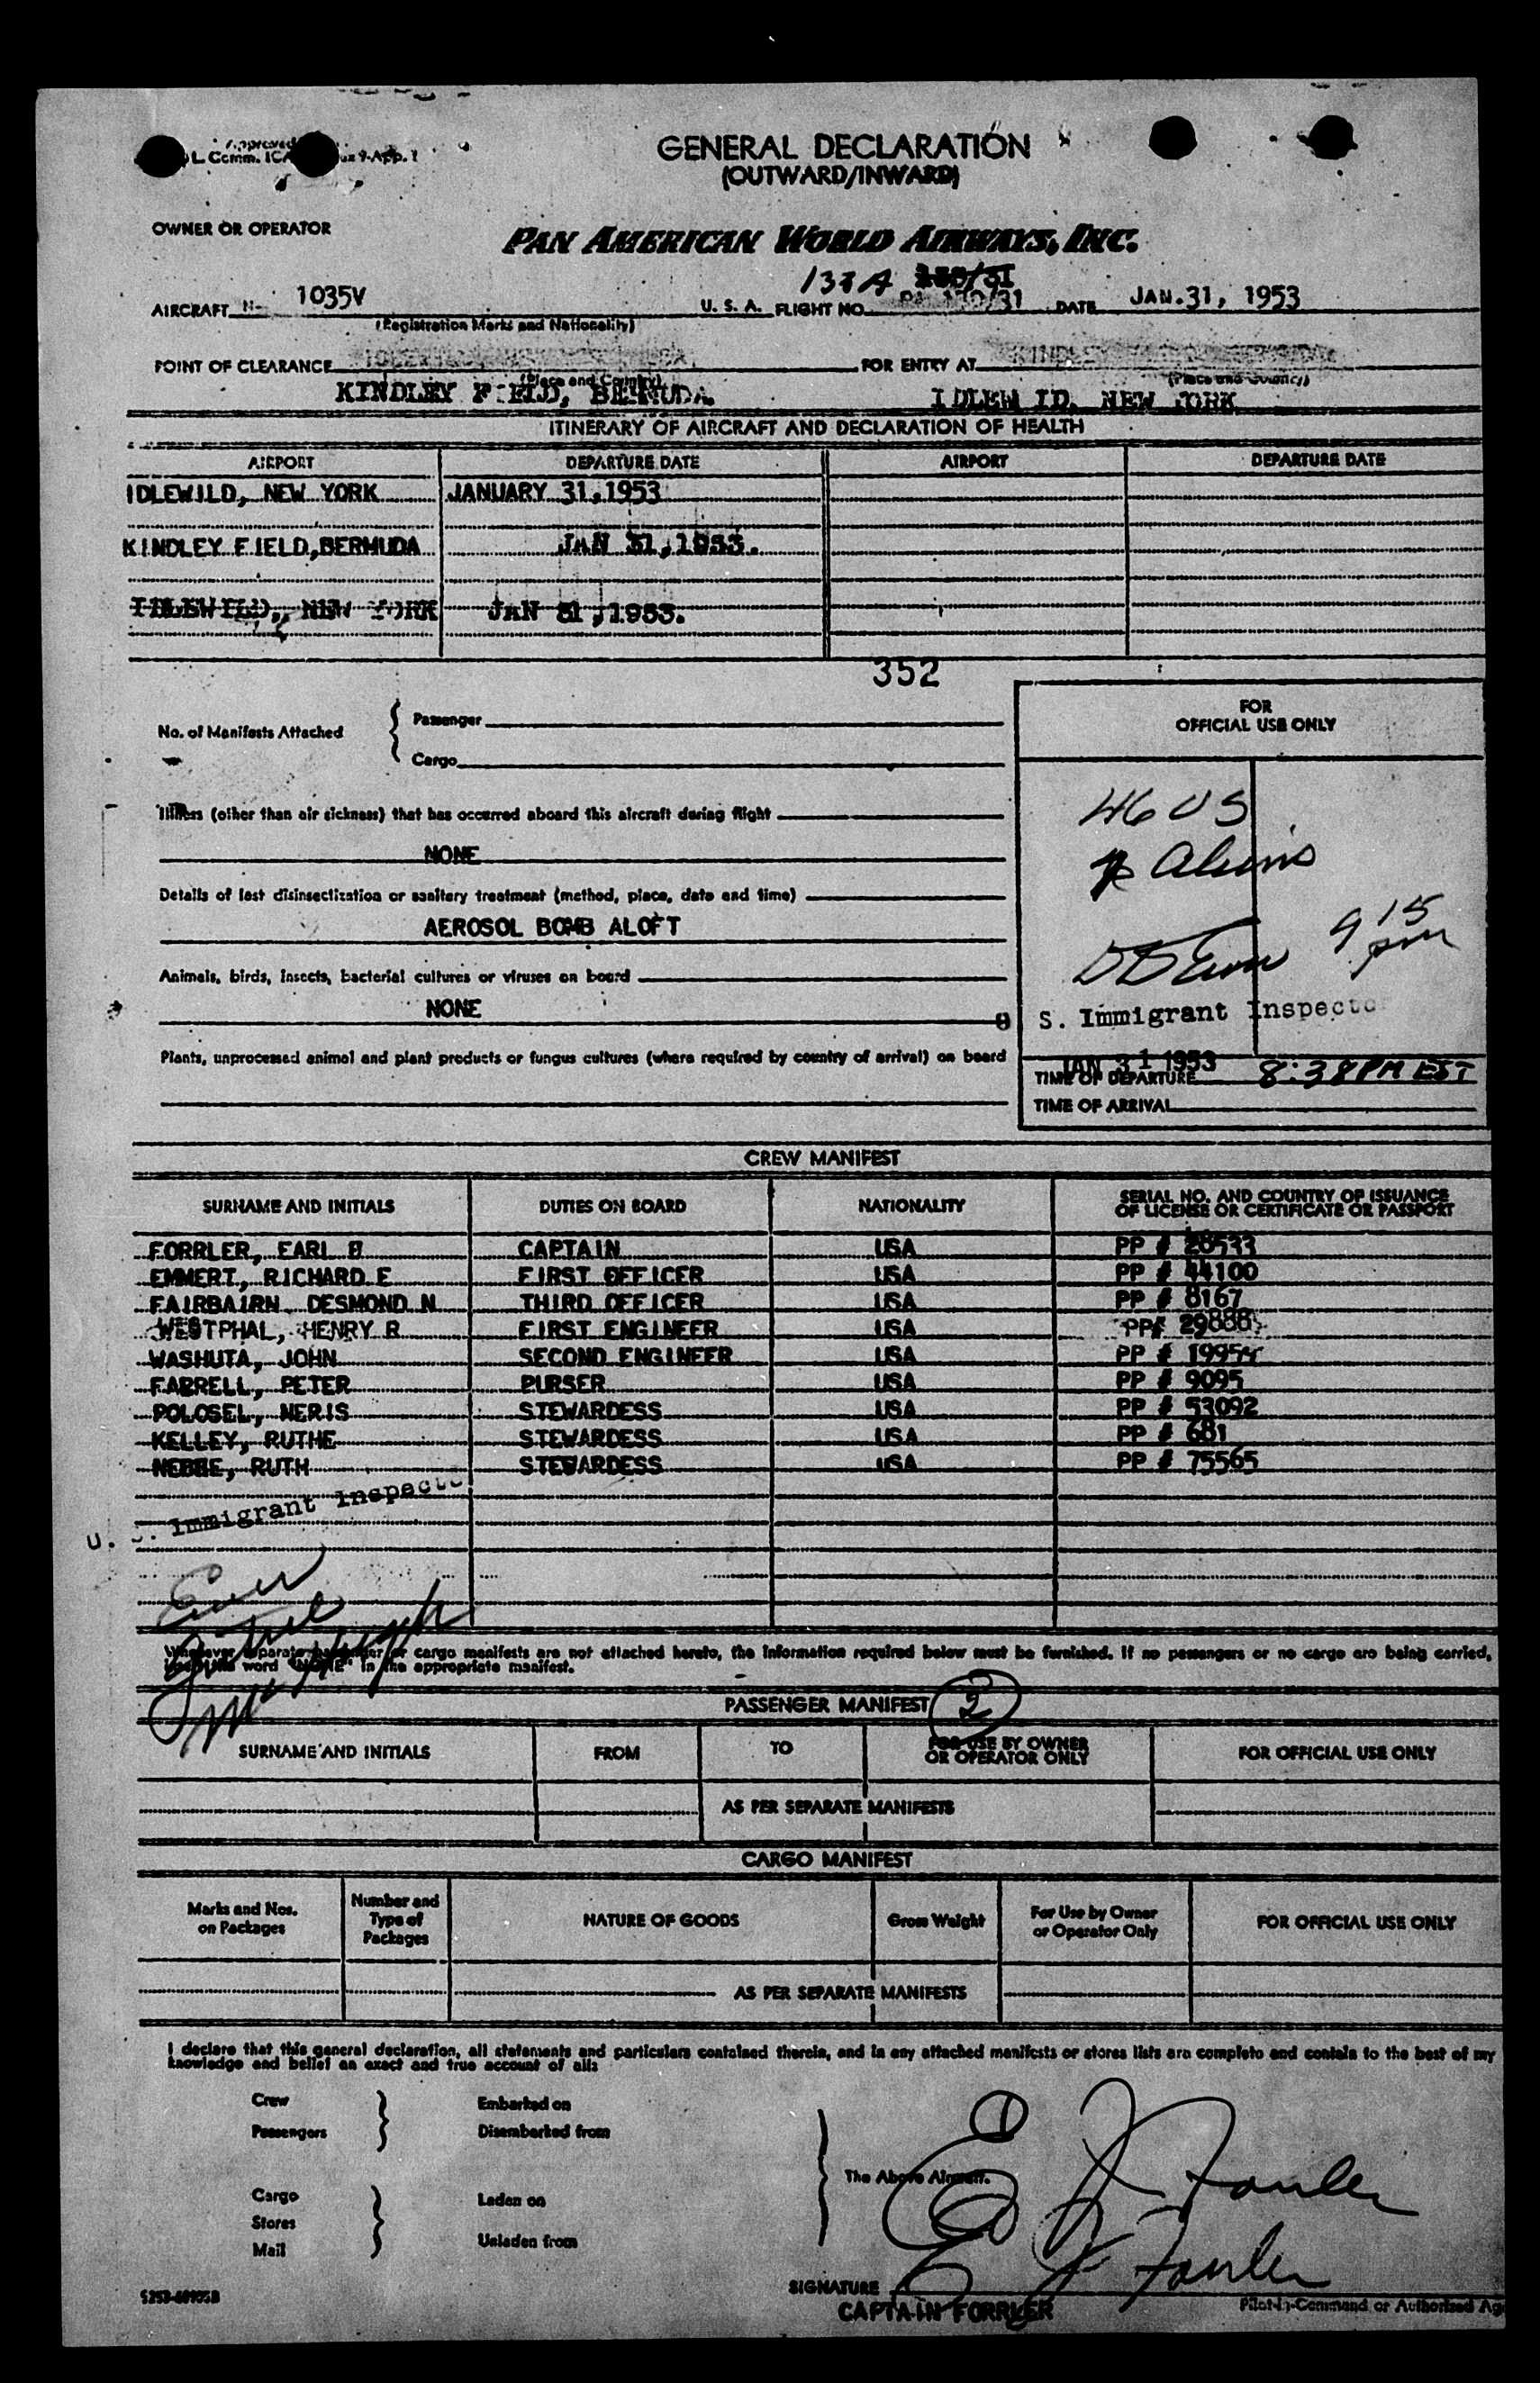 GENERAL DECLARATION
(OUTWARD/INWARD)
OWNER OR OPERATOR
PAN AMERICAN WORLD AIRWAYS, INC.
AIRCRAFT N- 1035V U. S. A. FLIGHT NO. DATE JAN.31, 1953
(Registration Marks and Nationality)
POINT OF CLEARANCE FOR ENTRY AT
(Place and Country) (Place and Country)
KINDLEY FIELD, BERMUDA. IDLEWILD, NEW YORK
ITINERARY OF AIRCRAFT AND DECLARATION OF HEALTH
AIRPORT DEPARTURE DATE AIRPORT DEPARTURE DATE
IDLEWILD, NEW YORK JANUARY 31,1953
KINDLEY FIELD,BERMUDA JAN 31,1953.
IDLEWILD, NEW YORK JAN 31,1953.
352
FOR
OFFICIAL USE ONLY
No. of Manifests Attached
Passenger
Cargo
46 US
Illness (other than air sickness) that has occurred aboard this aircraft during flight
NONE
Details of last disinsectization or sanitary treatment (method, place, date and time)
AEROSOL BOMB ALOFT
9 15 pm
Animals, birds, insects, bacterial cultures or viruses on board
NONE
S. Immigrant Inspector
Plants, unprocessed animal and plant products or fungus cultures (where required by country of arrival) on board
JAN 31 1953
TIME OF DEPARTURE 8:38 PM EST
TIME OF ARRIVAL
CREW MANIFEST
SURNAME AND INITIALS DUTIES ON BOARD NATIONALITY SERIAL NO. AND COUNTRY OF ISSUANCE
OF LICENSE OR CERTIFICATE OR PASSPORT
FORRLER, EARL CAPTAIN USA PP # 28533
EMMERT, RICHARD E FIRST OFFICER USA PP # 44100
FAIRBAIRN, DESMOND N THIRD OFFICER USA PP # 8167
WESTPHAL, HENRY R FIRST ENGINEER USA PP# 29888
WASHUTA, JOHN SECOND ENGINEER USA PP # 19954
FARRELL, PETER PURSER USA PP # 9095
POLOSEL, NERIS STEWARDESS USA PP # 53092
KELLEY, RUTHE STEWARDESS USA PP # 681
NEBBE, RUTH STEWARDESS USA PP # 75565
U. S. Immigrant Inspector
Whenever separate passenger or cargo manifests are not attached hereto, the information required below must be furnished. If no passengers or no cargo are being carried,
word "NONE" in the appropriate manifest.
PASSENGER MANIFEST 2
SURNAME AND INITIALS FROM TO FOR USE BY OWNER
OR OPERATOR ONLY FOR OFFICIAL USE ONLY
AS PER SEPARATE MANIFESTS
CARGO MANIFEST
Marks and Nos.
on Packages Number and
Type of
Packages NATURE OF GOODS Gross Weight For Use by Owner
or Operator Only FOR OFFICIAL USE ONLY
AS PER SEPARATE MANIFESTS
I declare that this general declaration, all statements and particulars contained therein, and in any attached manifests or stores lists are complete and contain to the best of my
knowledge and belief an exact and true account of all:
Crew Embarked on
Passengers Disembarked from
The Above Aircraft.
Cargo Laden on
Stores
Mail Unladen from
SIGNATURE
CAPTAIN FORRLER Pilot-in-Command or Authorized Ag